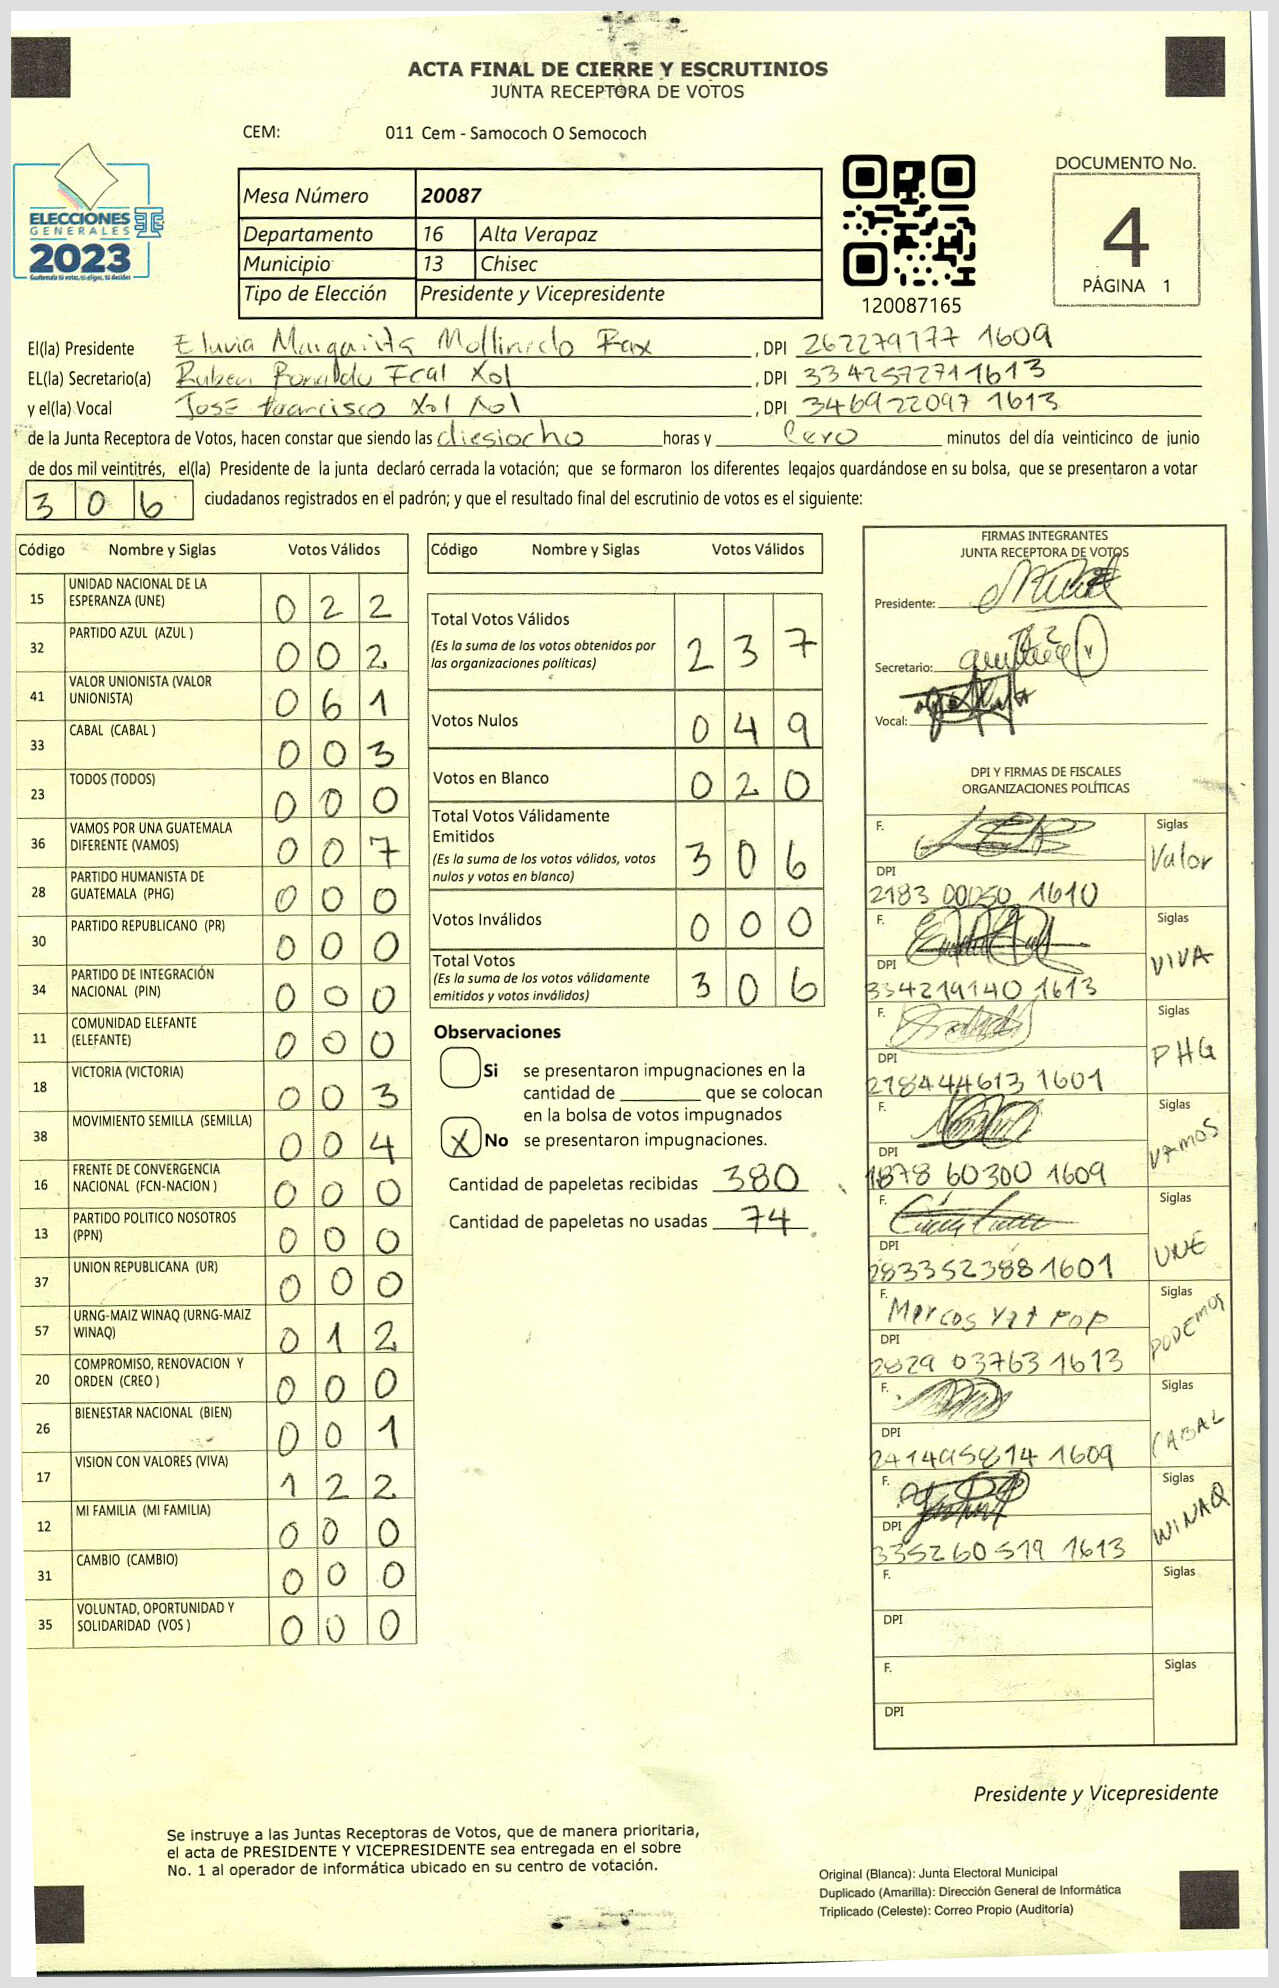 ACTA FINAL DE CIERRE Y ESCRUTINIOS
JUNTA RECEPTORA DE VOTOS
CEM: 011 Cem - Samococh O Semococh
ELECCIONES
GENERALES
2023
Guatemala tú votas, tú eliges, tú decides
Mesa Número 20087
Departamento 16 Alta Verapaz
Municipio 13 Chisec
Tipo de Elección Presidente y Vicepresidente
120087165
DOCUMENTO No.
4
PÁGINA 1
El(la) Presidente Eluvia Margarita Mollinedo Rax, DPI 262279777 1609
EL(la) Secretario(a) Ruben Ronaldo Ical Xol, DPI 334257271 1613
y el(la) Vocal José Francisco Xol Xol, DPI 346922097 1613
de la Junta Receptora de Votos, hacen constar que siendo las diesiocho horas y Cero minutos del día veinticinco de junio
de dos mil veintitrés, el(la) Presidente de la junta declaró cerrada la votación; que se formaron los diferentes legajos guardándose en su bolsa, que se presentaron a votar
306 ciudadanos registrados en el padrón; y que el resultado final del escrutinio de votos es el siguiente:
Código Nombre y Siglas Votos Válidos
15 UNIDAD NACIONAL DE LA ESPERANZA (UNE) 022
32 PARTIDO AZUL (AZUL ) 002
41 VALOR UNIONISTA (VALOR UNIONISTA) 061
33 CABAL (CABAL ) 003
23 TODOS (TODOS) 000
36 VAMOS POR UNA GUATEMALA DIFERENTE (VAMOS) 007
28 PARTIDO HUMANISTA DE GUATEMALA (PHG) 000
30 PARTIDO REPUBLICANO (PR) 000
34 PARTIDO DE INTEGRACIÓN NACIONAL (PIN) 000
11 COMUNIDAD ELEFANTE (ELEFANTE) 000
18 VICTORIA (VICTORIA) 003
38 MOVIMIENTO SEMILLA (SEMILLA) 004
16 FRENTE DE CONVERGENCIA NACIONAL (FCN-NACION ) 000
13 PARTIDO POLITICO NOSOTROS (PPN) 000
37 UNION REPUBLICANA (UR) 000
57 URNG-MAIZ WINAQ (URNG-MAIZ WINAQ) 012
20 COMPROMISO, RENOVACION Y ORDEN (CREO ) 000
26 BIENESTAR NACIONAL (BIEN) 001
17 VISION CON VALORES (VIVA) 122
12 MI FAMILIA (MI FAMILIA) 000
31 CAMBIO (CAMBIO) 000
35 VOLUNTAD, OPORTUNIDAD Y SOLIDARIDAD (VOS ) 000
Código Nombre y Siglas Votos Válidos
Total Votos Válidos 237
(Es la suma de los votos obtenidos por
las organizaciones políticas)
Votos Nulos 049
Votos en Blanco 020
Total Votos Válidamente
Emitidos 306
(Es la suma de los votos válidos, votos
nulos y votos en blanco)
Votos Inválidos 000
Total Votos 306
(Es la suma de los votos válidamente
emitidos y votos inválidos)
Observaciones
Si se presentaron impugnaciones en la
cantidad de ________ que se colocan
en la bolsa de votos impugnados
X No se presentaron impugnaciones.
Cantidad de papeletas recibidas 380
Cantidad de papeletas no usadas 74
FIRMAS INTEGRANTES
JUNTA RECEPTORA DE VOTOS
Presidente:
Secretario:
Vocal:
DPI Y FIRMAS DE FISCALES
ORGANIZACIONES POLÍTICAS
F. Siglas Valor
DPI 2183 1610
F. Siglas VIVA
DPI 334219140 1613
F. Siglas PHG
DPI 218444613 1601
F. Siglas VAMOS
DPI 1878 60300 1609
F. Siglas UNE
DPI 283352388 1601
F. Marcos Yat Pop Siglas PODEMOS
DPI 2829 03763 1613
F. Siglas CABAL
DPI 241495814 1609
F. Siglas WINAQ
DPI 335260519 1613
F. Siglas
DPI
F. Siglas
DPI
Presidente y Vicepresidente
Se instruye a las Juntas Receptoras de Votos, que de manera prioritaria,
el acta de PRESIDENTE Y VICEPRESIDENTE sea entregada en el sobre
No. 1 al operador de informática ubicado en su centro de votación.
Original (Blanca): Junta Electoral Municipal
Duplicado (Amarilla): Dirección General de Informática
Triplicado (Celeste): Correo Propio (Auditoría)